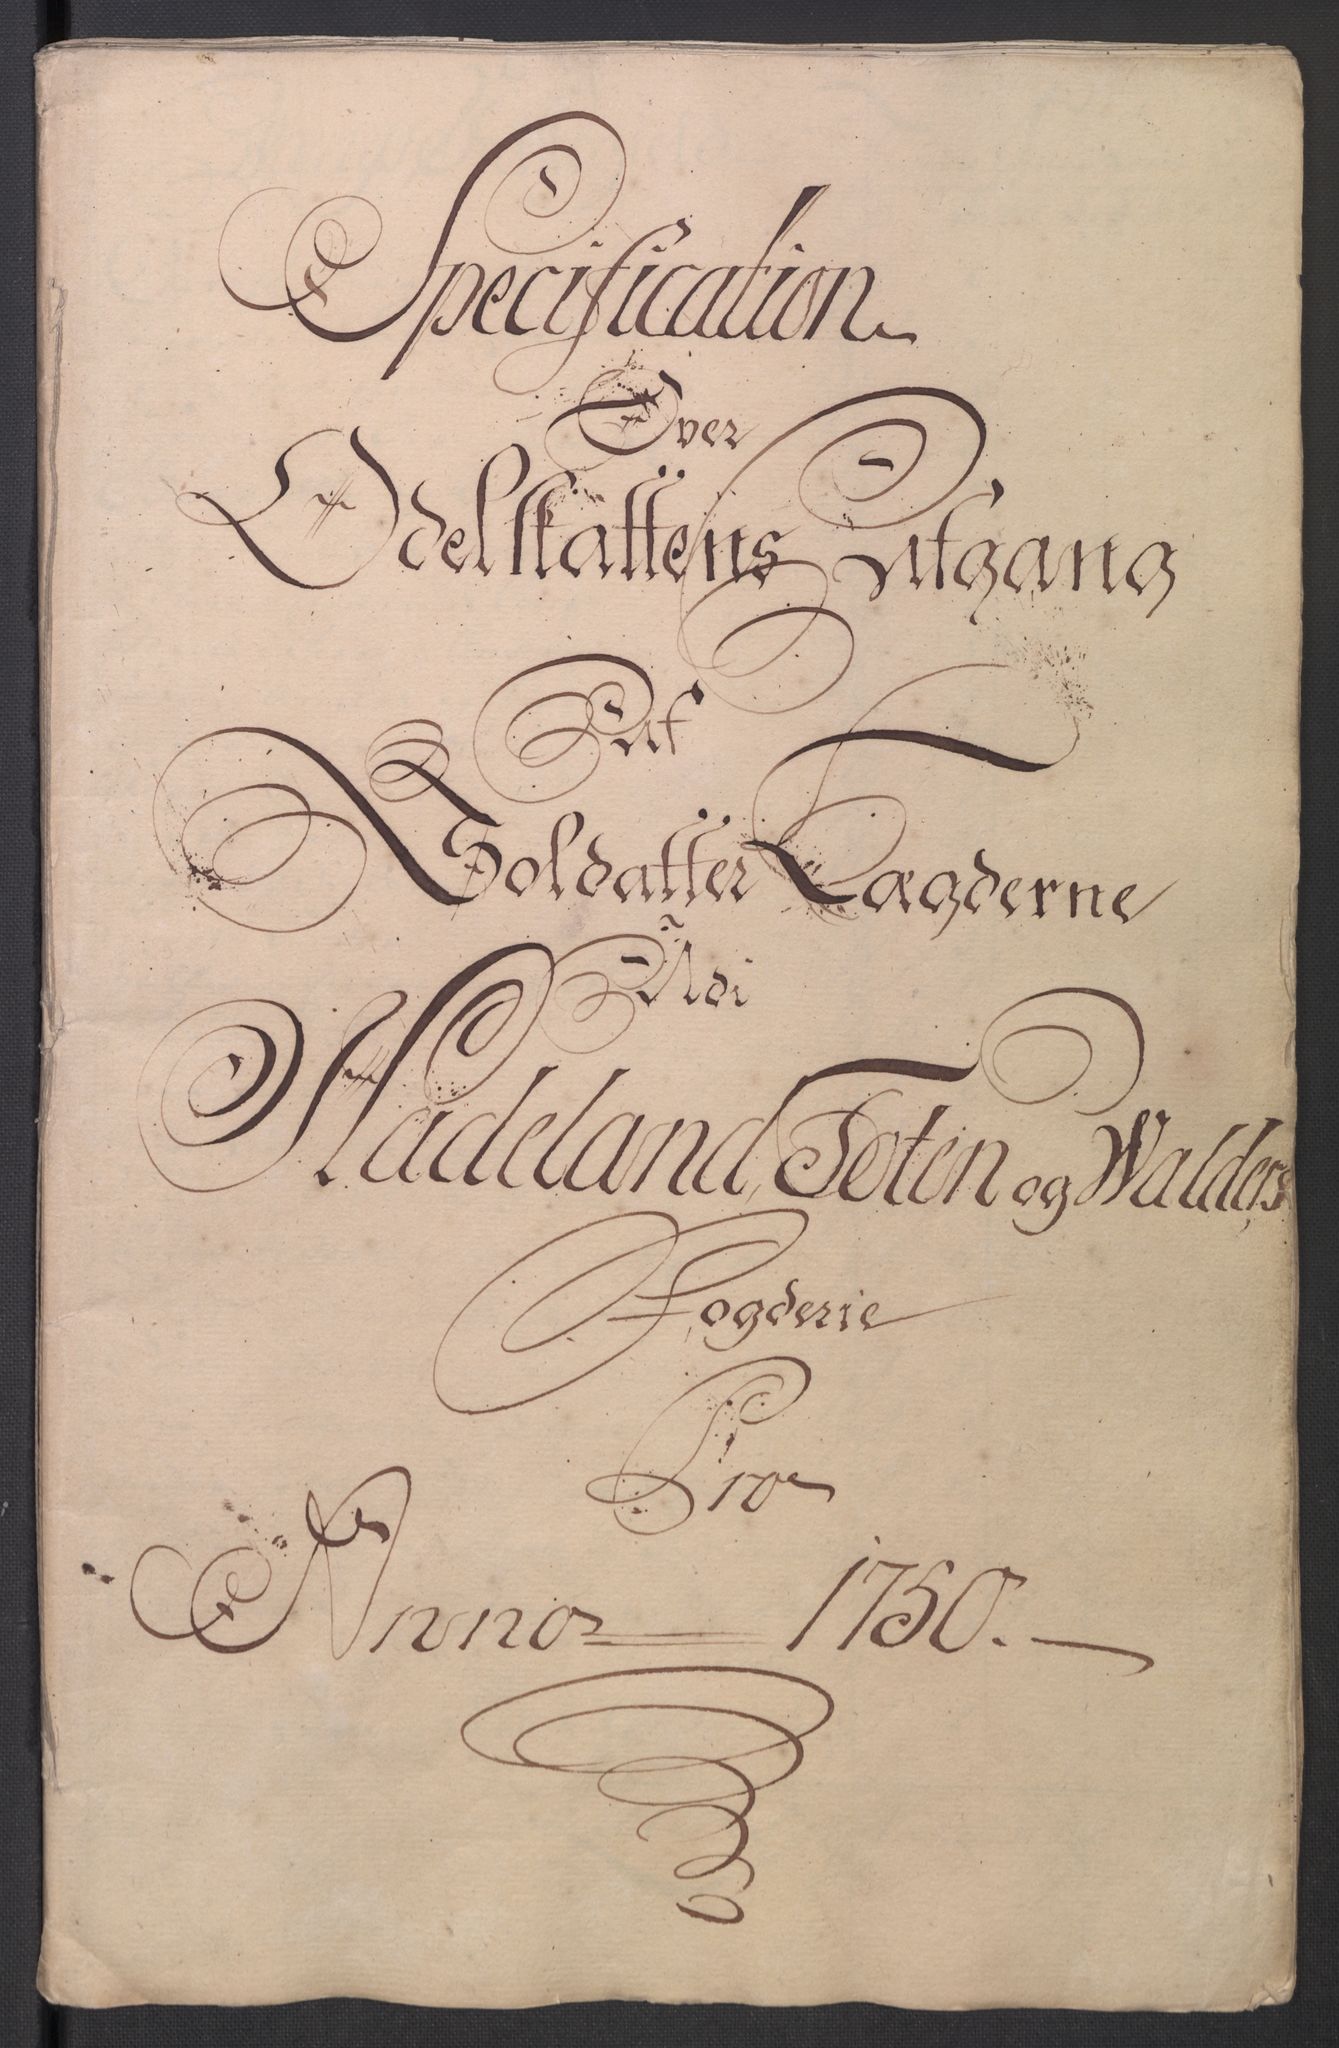 Specification
Over
Odelskattens Afgang
Af
Soldatter Lægderne
Udi
Hadeland, Toten og Walders
Fogderie
Pro
Anno 1750.